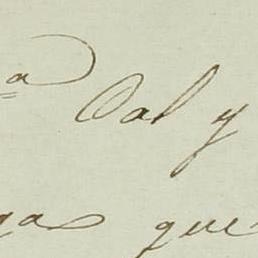 a Oal y
gas que